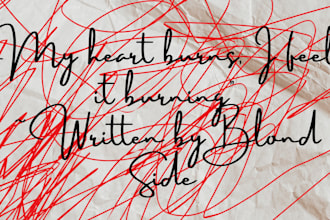 My heart burns, I feel
it burning"
~Written by Blond
Side